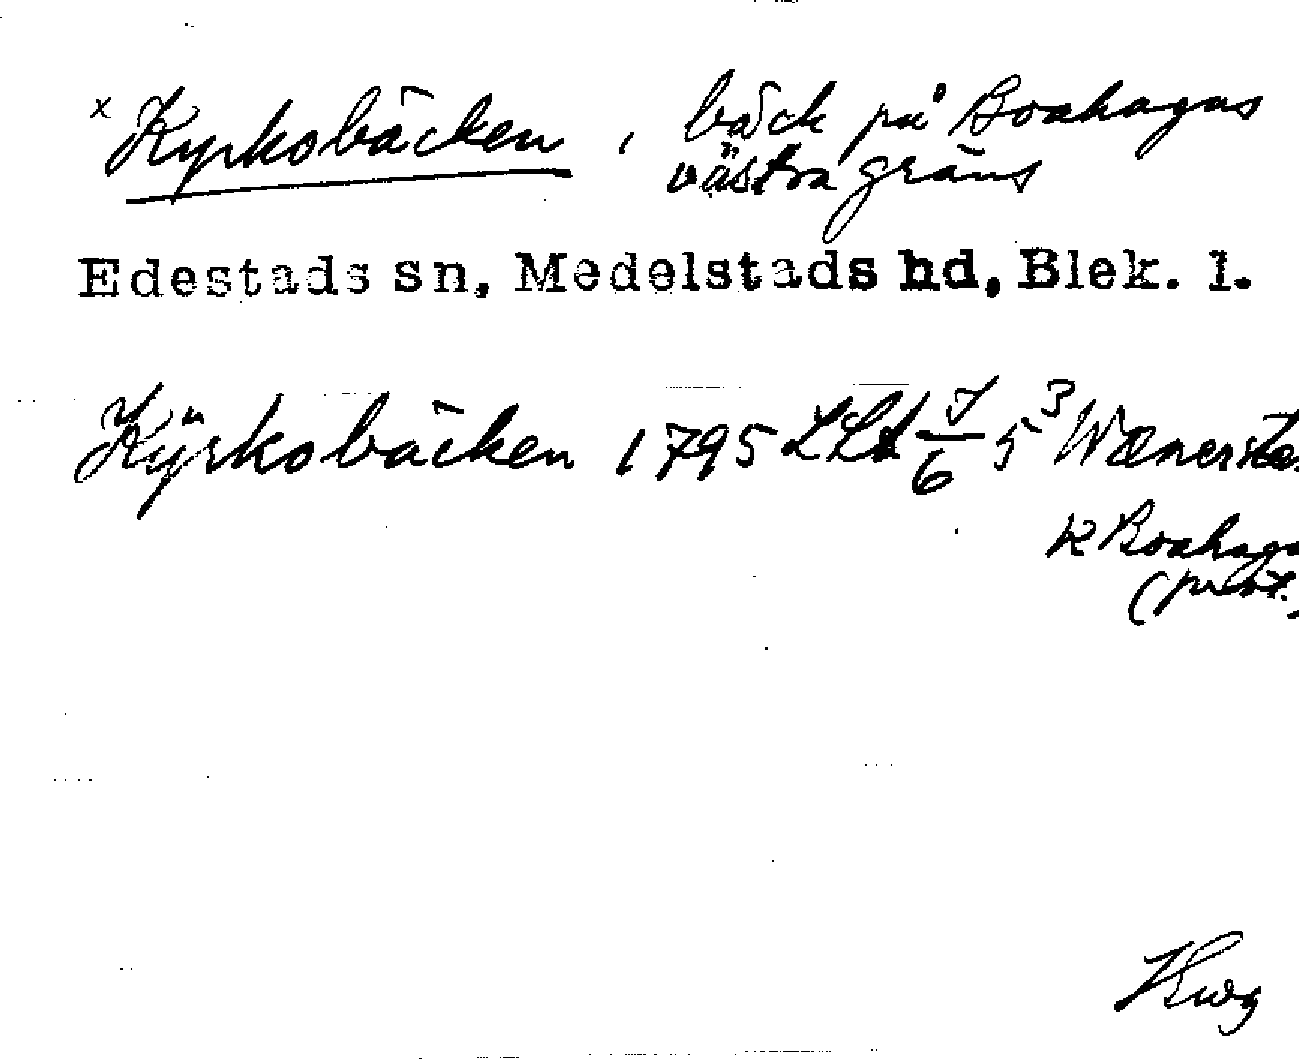 x Kyrkobäcken, bäck på Boahagas
västra gräns
Edestads sn, Medelstads hd, Blek. l.
Kÿrkobäcken 1795 LLA 7/6 5 3 Wæmerste
k Boahaga
(prot.